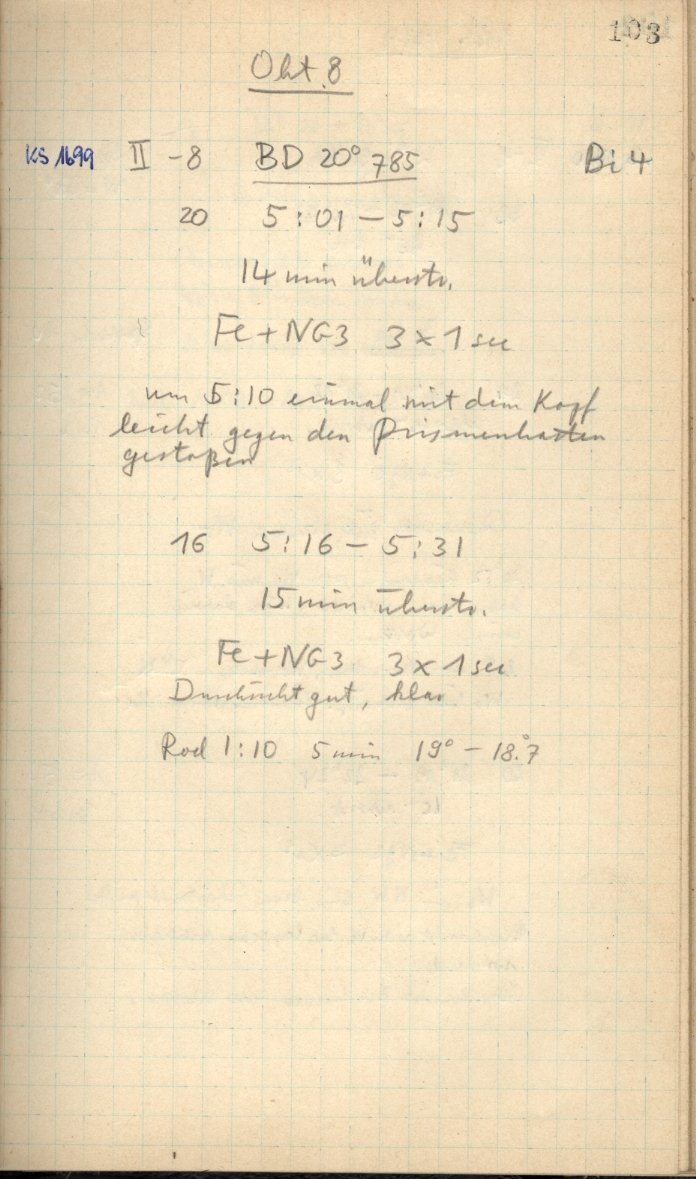 103
Okt. 8
KS 1699 II - 8 BD 20° 785 Bi 4
20 5:01 – 5:15
14 min überstr.
Fe + NG3 3 x 1 sec
um 5:10 einmal mit dem Kopf
leicht gegen den Prismenkasten
gestoßen
16 5:16 – 5:31
15 min überstr.
Fe + NG3 3 x 1 sec
Durchsicht gut, klar
Rod 1:10 5 min 19° – 18.°7